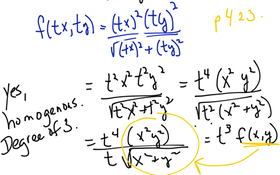 f(tx,ty) = (tx)² (ty)² / √((tx)² + (ty)²)
p 423.
Yes, homogenous. Degree of 3.
= t²x² t²y² / √(t²x² + t²y²) = t⁴ (x² y²) / √(t² (x² + y²))
= t⁴ (x² y²) / t √(x² + y²) = t³ f(x,y)